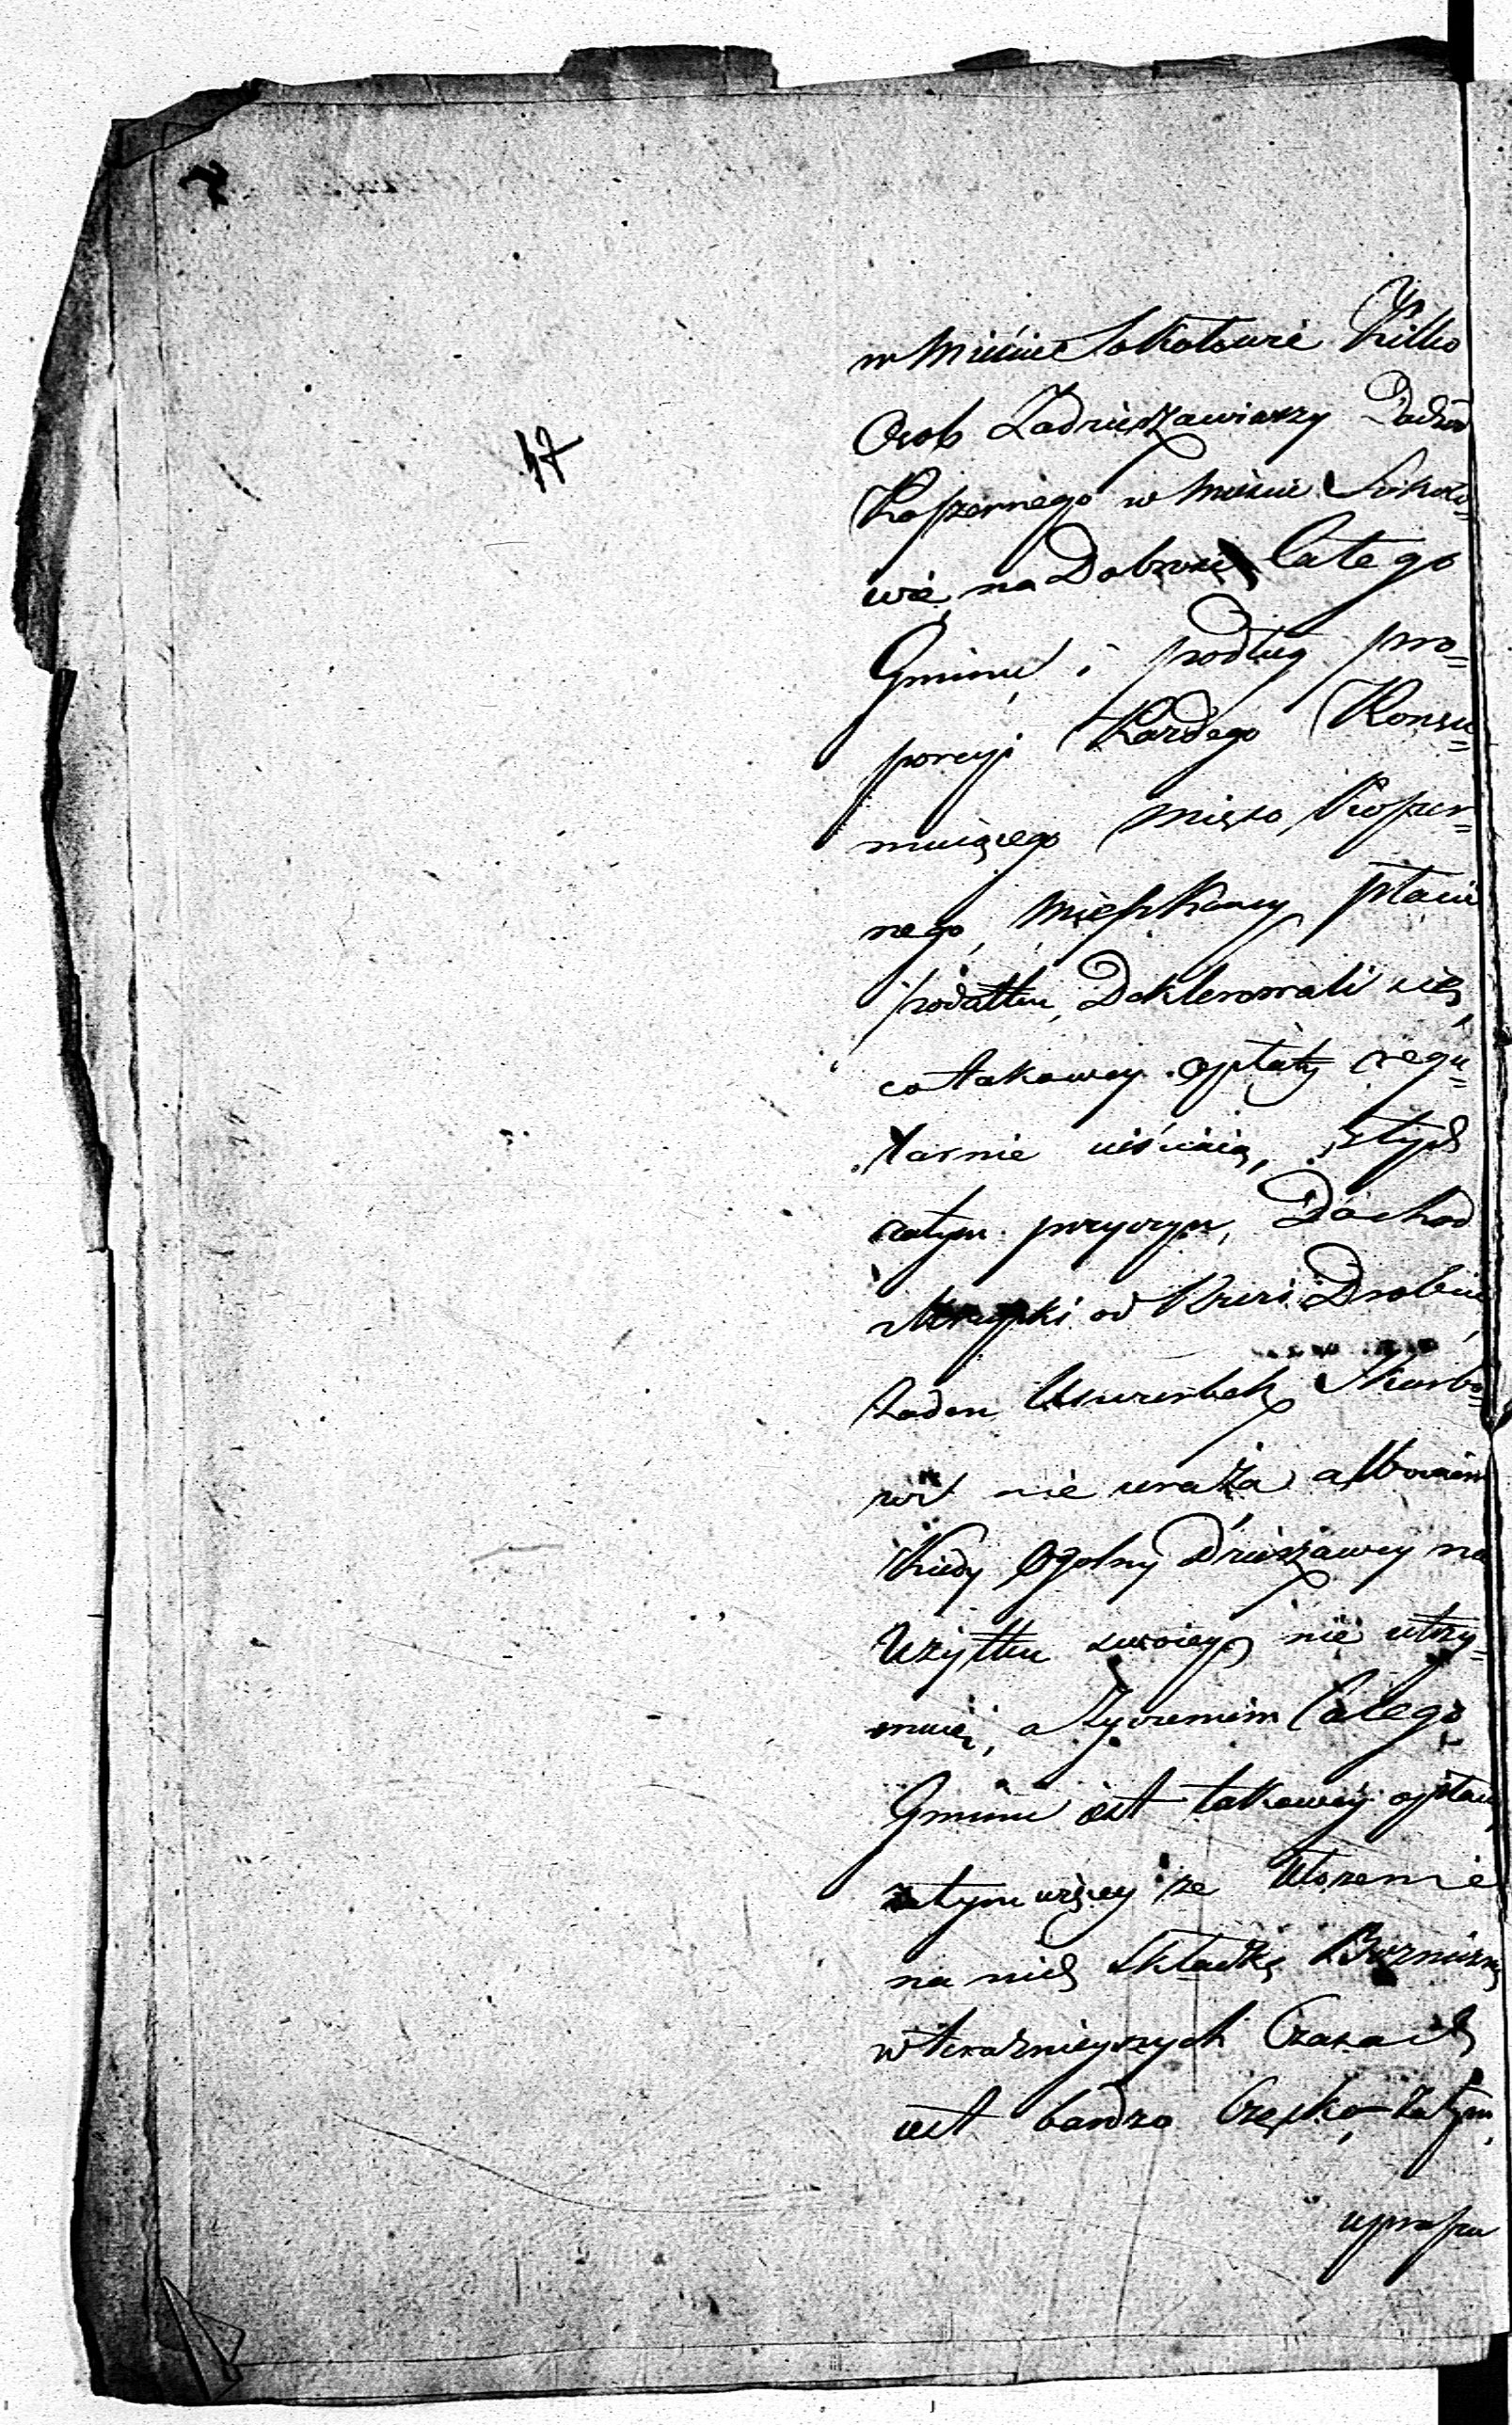 w Mieście Sokołowie Kilka
Osob Zadzierzawiwszy Dochod
Koszernego w Mieście Sokoło=
wie, na Dobro całego
Gminu i podług pro=
porcyi Każdego Konsu=
muiącego Mięso Koszer=
nego, Mieszkancy płacić
podatku, Deklerowali się,
co takowey opłaty regu=
larnie uiścaią, ztych
zatym przyczyn, Dochod
od Rzezi Drobiu
żaden Uszczerbek Skarbo=
wi nie uraża albowiem
Kiedy Ogolny Dzierżawcy na
Użytku swoiey nie utrzy=
muie, a życzeniem Całego
Gminu iest takowey opłaty
zatym więcy że Włożenie
na nich Składkę Boznicżną
w teraznieyszych Czasach
iest bardzo Ciężko, Zatym,
uprasza
47